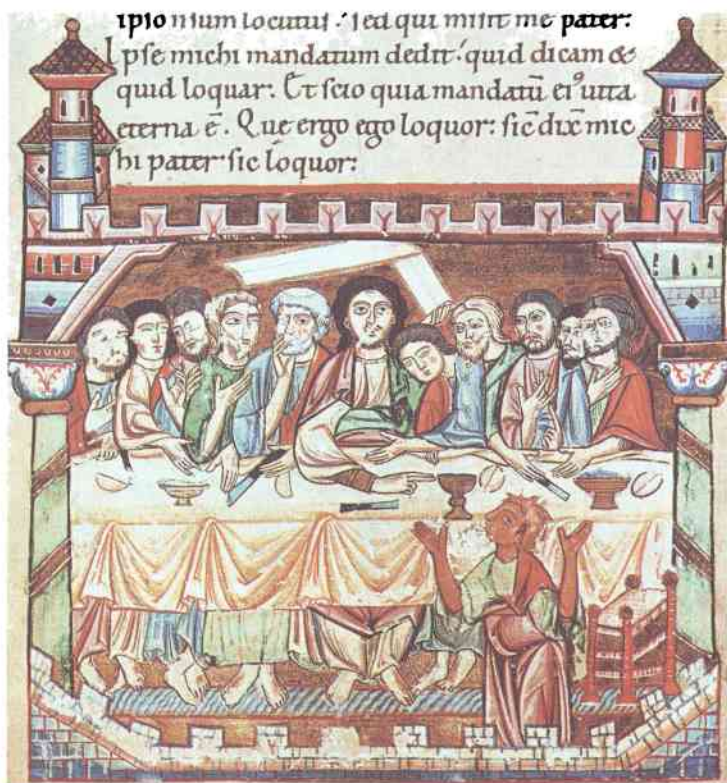 ipso n sum locutus : sed qui misit me pater:
Ipse michi mandatum dedit : quid dicam &
quid loquar. Et scio quia mandatū eiꝰ uita
eterna ē. Que ergo ego loquor: sic dix̄ mic
hi pater sic loquor: